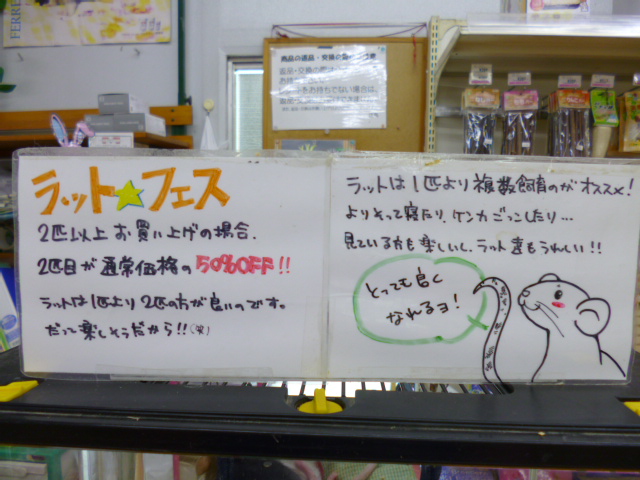 FERRE
商品の返品・交換の
ラット★フェス
2匹以上お買い上げの場合、
2匹目が通常価格の50%OFF!!
ラットは1匹より2匹の方が良いのです。
だって楽しそうだから!!(笑)
ラットは1匹より複数飼育のがオススメ!
よりそって寝たり、ケンカごっこしたり…
見ている方も楽しいし、ラット達もうれしい!!
とっても良く
なれるヨ!